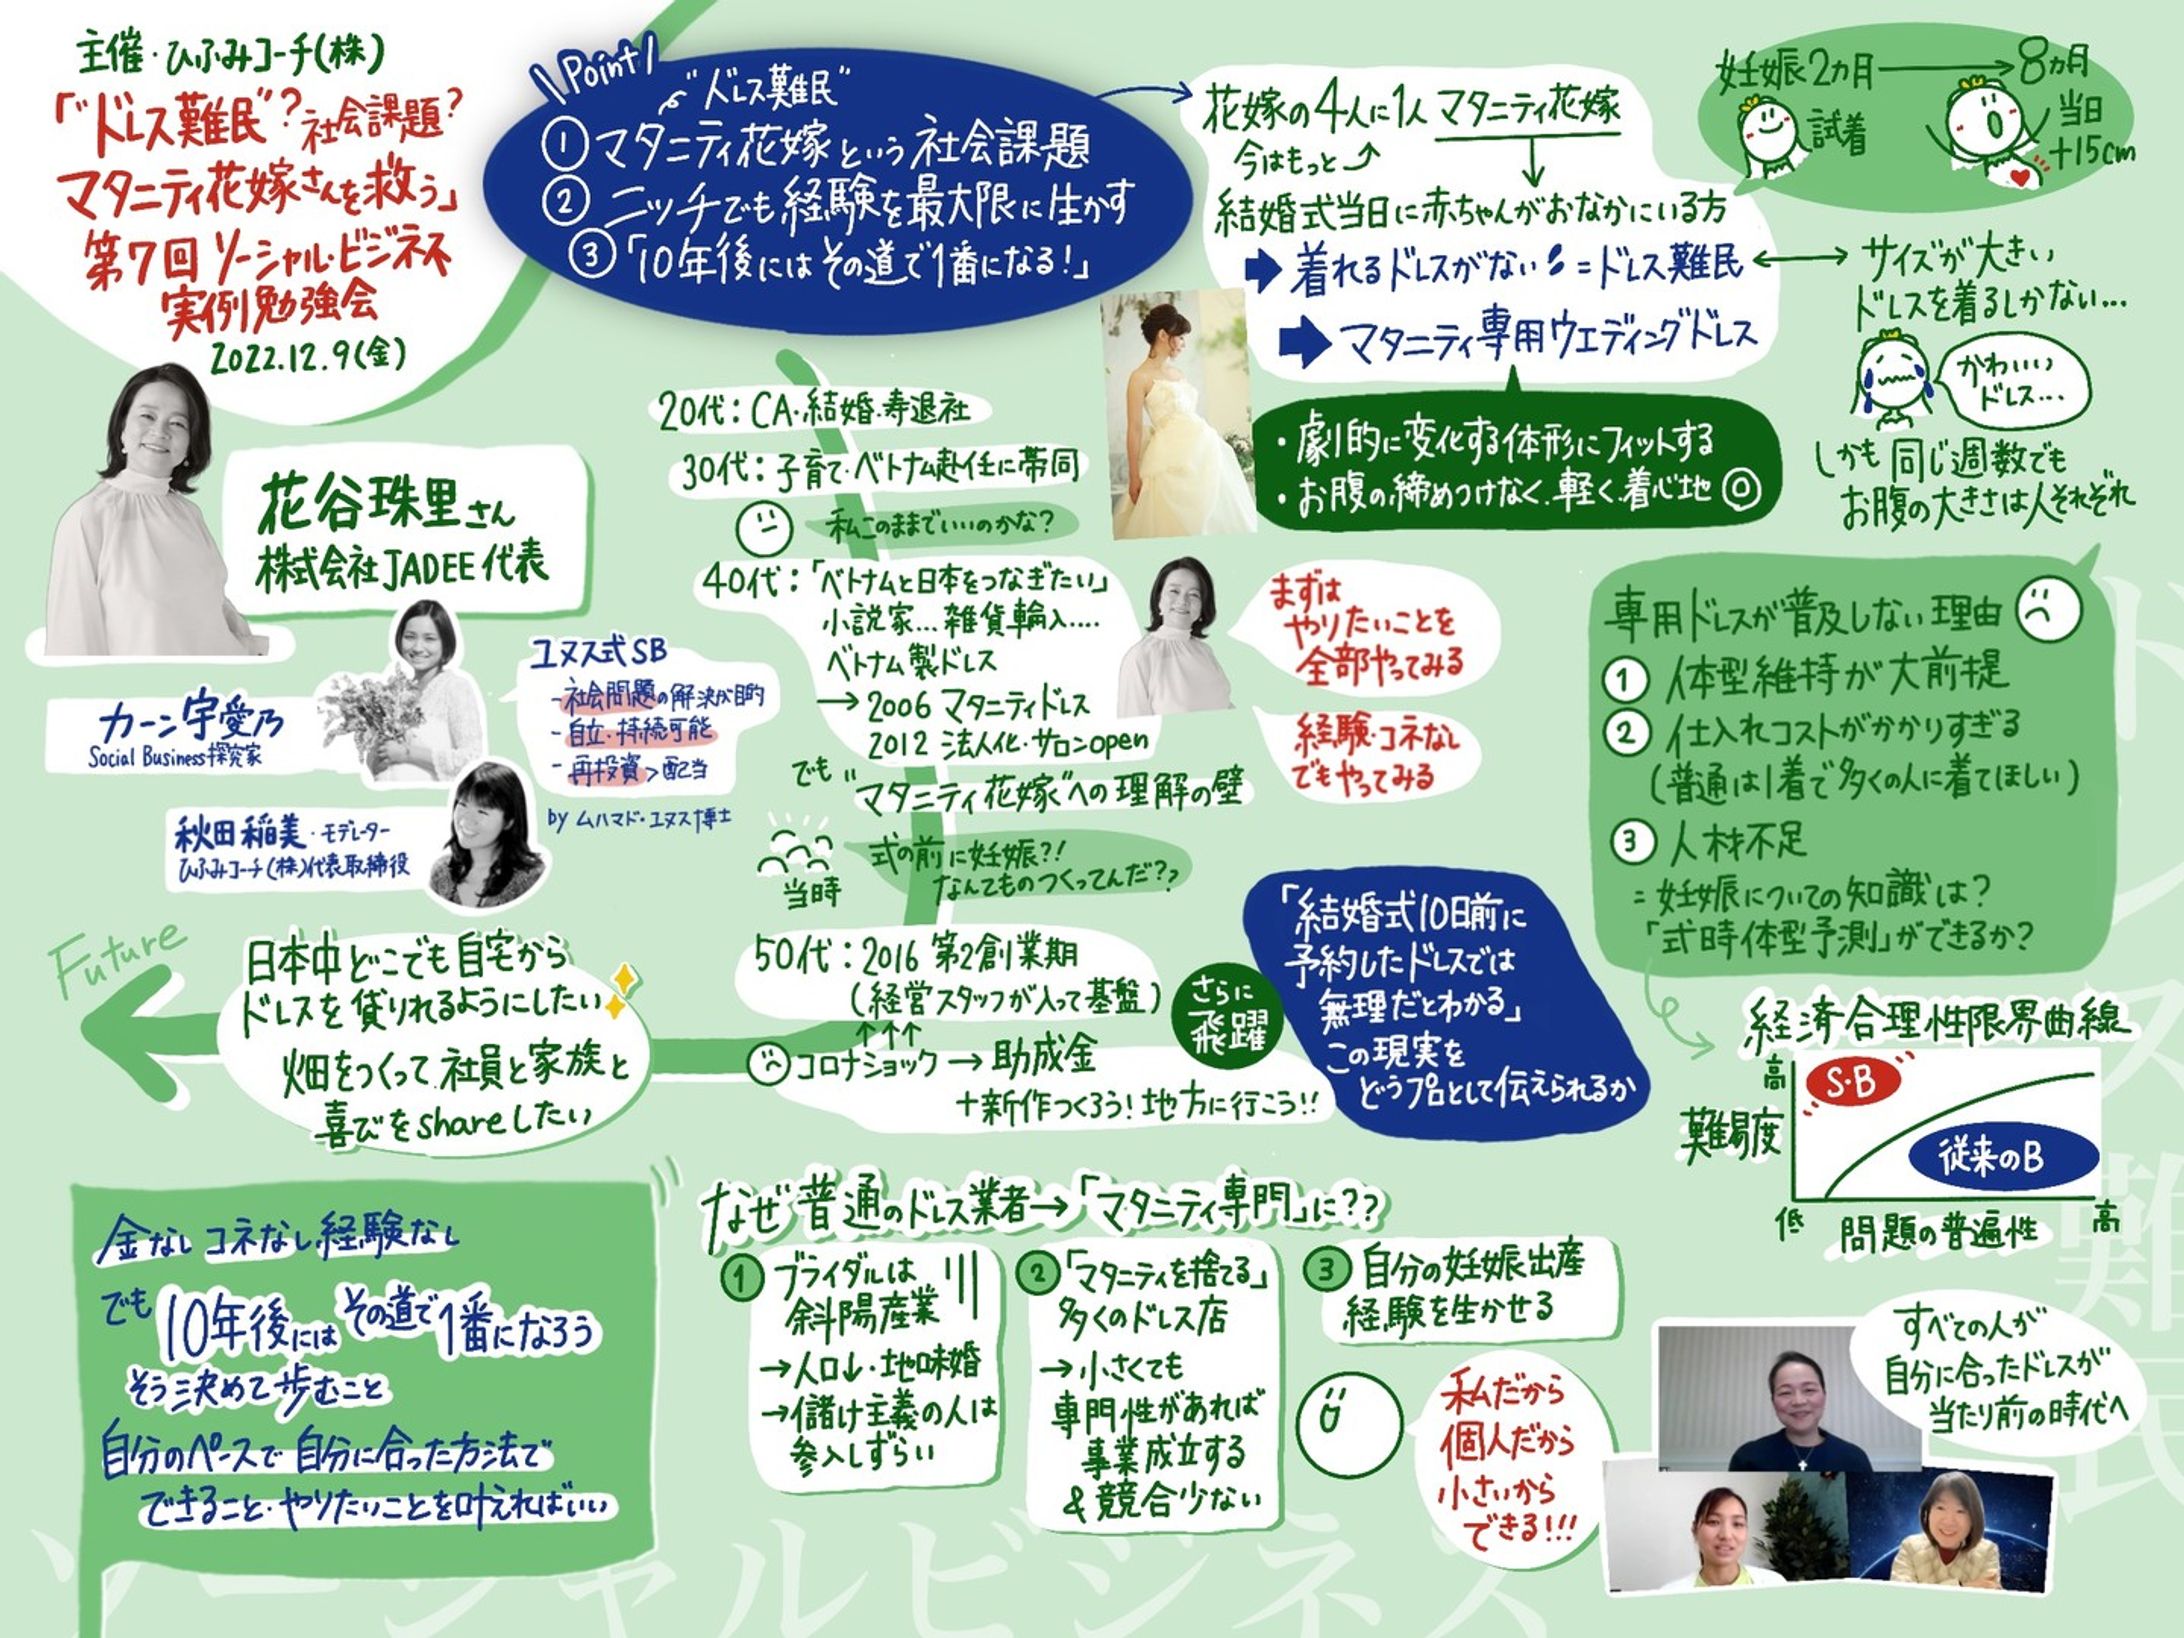 主催・ひふみコーチ(株)
「"ドレス難民"?社会課題?
マタニティ花嫁さんを救う」
第7回 ソーシャル・ビジネス
実例勉強会
2022.12.9(金)
花谷珠里さん
株式会社JADEE代表
カーン宇愛乃
Social Business探究家
秋田稲美・モデレーター
ひふみコーチ(株)代表取締役
ユヌス式SB
-社会問題の解決が目的
-自立・持続可能
-再投資>配当
by ムハマド・ユヌス博士
\Point/
"ドレス難民"
①マタニティ花嫁という社会課題
②ニッチでも経験を最大限に生かす
③「10年後にはその道で1番になる!」
花嫁の4人に1人 マタニティ花嫁
今はもっと
結婚式当日に赤ちゃんがおなかにいる方
着れるドレスがない=ドレス難民
マタニティ専用ウエディングドレス
・劇的に変化する体形にフィットする
・お腹の締めつけなく、軽く、着心地◎
妊娠2カ月→8カ月
試着
当日
+15cm
サイズが大きい
ドレスを着るしかない…
かわいい
ドレス…
しかも 同じ週数でも
お腹の大きさは人それぞれ
専用ドレスが普及しない理由
① 体型維持が大前提
② 仕入れコストがかかりすぎる
(普通は1着で多くの人に着てほしい)
③ 人材不足
=妊娠についての知識は?
「式時体型予測」ができるか?
経済合理性限界曲線
高
難易度
S・B
従来のB
低
問題の普遍性
高
20代:CA・結婚・寿退社
30代:子育て・ベトナム赴任に帯同
私このままでいいのかな?
40代:「ベトナムと日本をつなぎたい」
小説家…雑貨輸入….
ベトナム製ドレス
→2006 マタニティドレス
2012 法人化・サロンopen
でも"マタニティ花嫁"への理解の壁
当時
式の前に妊娠?!
なんてものつくってんだ??
まずは
やりたいことを
全部やってみる
経験・コネなし
でもやってみる
50代:2016 第2創業期
(経営スタッフが入って基盤)
↑↑↑
コロナショック→助成金
+新作つくろう!地方に行こう!!
さらに
飛躍
「結婚式10日前に
予約したドレスでは
無理だとわかる」
この現実を
どうプロとして伝えられるか
Future
日本中どこでも自宅から
ドレスを貸りれるようにしたい
畑をつくって社員と家族と
喜びをshareしたい
金なし コネなし 経験なし
でも 10年後には その道で1番になろう
そう決めて歩むこと
自分のペースで 自分に合った方法で
できること・やりたいことを叶えればいい
なぜ普通のドレス業者→「マタニティ専門」に??
① ブライダルは
斜陽産業
→人口↓・地味婚
→儲け主義の人は
参入しずらい
②「マタニティを捨てる」
多くのドレス店
→小さくても
専門性があれば
事業成立する
&競合少ない
③ 自分の妊娠出産
経験を生かせる
私だから
個人だから
小さいから
できる!!!
すべての人が
自分に合ったドレスが
当たり前の時代へ
ソーシャルビジネス
ドレス難民